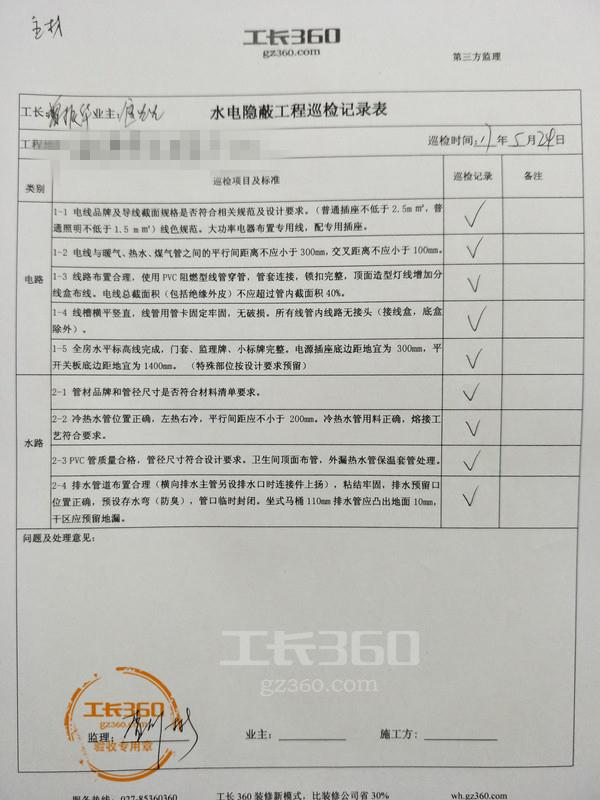 工长360
gz360.com
第三方监理
水电隐蔽工程巡检记录表
工长: 业主:
工程 巡检时间:17年5月24日
类别 巡检项目及标准 巡检记录 备注
电路
1-1 电线品牌及导线截面规格是否符合相关规范及设计要求。(普通插座不低于 2.5m㎡,普
通照明不低于 1.5 m㎡)线色规范。大功率电器布置专用线,配专用插座。
1-2 电线与暖气、热水、煤气管之间的平行间距离不应小于300mm,交叉距离不应小于100mm。
1-3 线路布置合理,使用 PVC 阻燃型线管穿管,管套连接,锁扣完整,顶面造型灯线增加分
线盒布线。电线总截面积(包括绝缘外皮)不应超过管内截面积 40%。
1-4 线槽横平竖直,线管用管卡固定牢固,无破损。所有线管内线路无接头(接线盒,底盒
除外)。
1-5 全房水平标高线完成,门套、监理牌、小标牌完整。电源插座底边距地宜为 300mm,平
开关板底边距地宜为 1400mm。(特殊部位按设计要求预留)
水路
2-1 管材品牌和管径尺寸是否符合材料清单要求。
2-2 冷热水管位置正确,左热右冷,平行间距应不小于 200mm。冷热水管用料正确,熔接工
艺符合要求。
2-3 PVC 管质量合格,管径尺寸符合设计要求。卫生间顶面布管,外漏热水管保温套管处理。
2-4 排水管道布置合理(横向排水主管另设排水口时连接件上扬),粘结牢固,排水预留口
位置正确,预设存水弯(防臭),管口临时封闭。坐式马桶 110mm 排水管应凸出地面 10mm,
干区应预留地漏。
问题及处理意见:
工长360
gz360.com
工长360
gz360.com
验收专用章
监理: 业主: 施工方:
服务热线: 027-85360360 工长 360 装修新模式,比装修公司省 30% wh.gz360.com